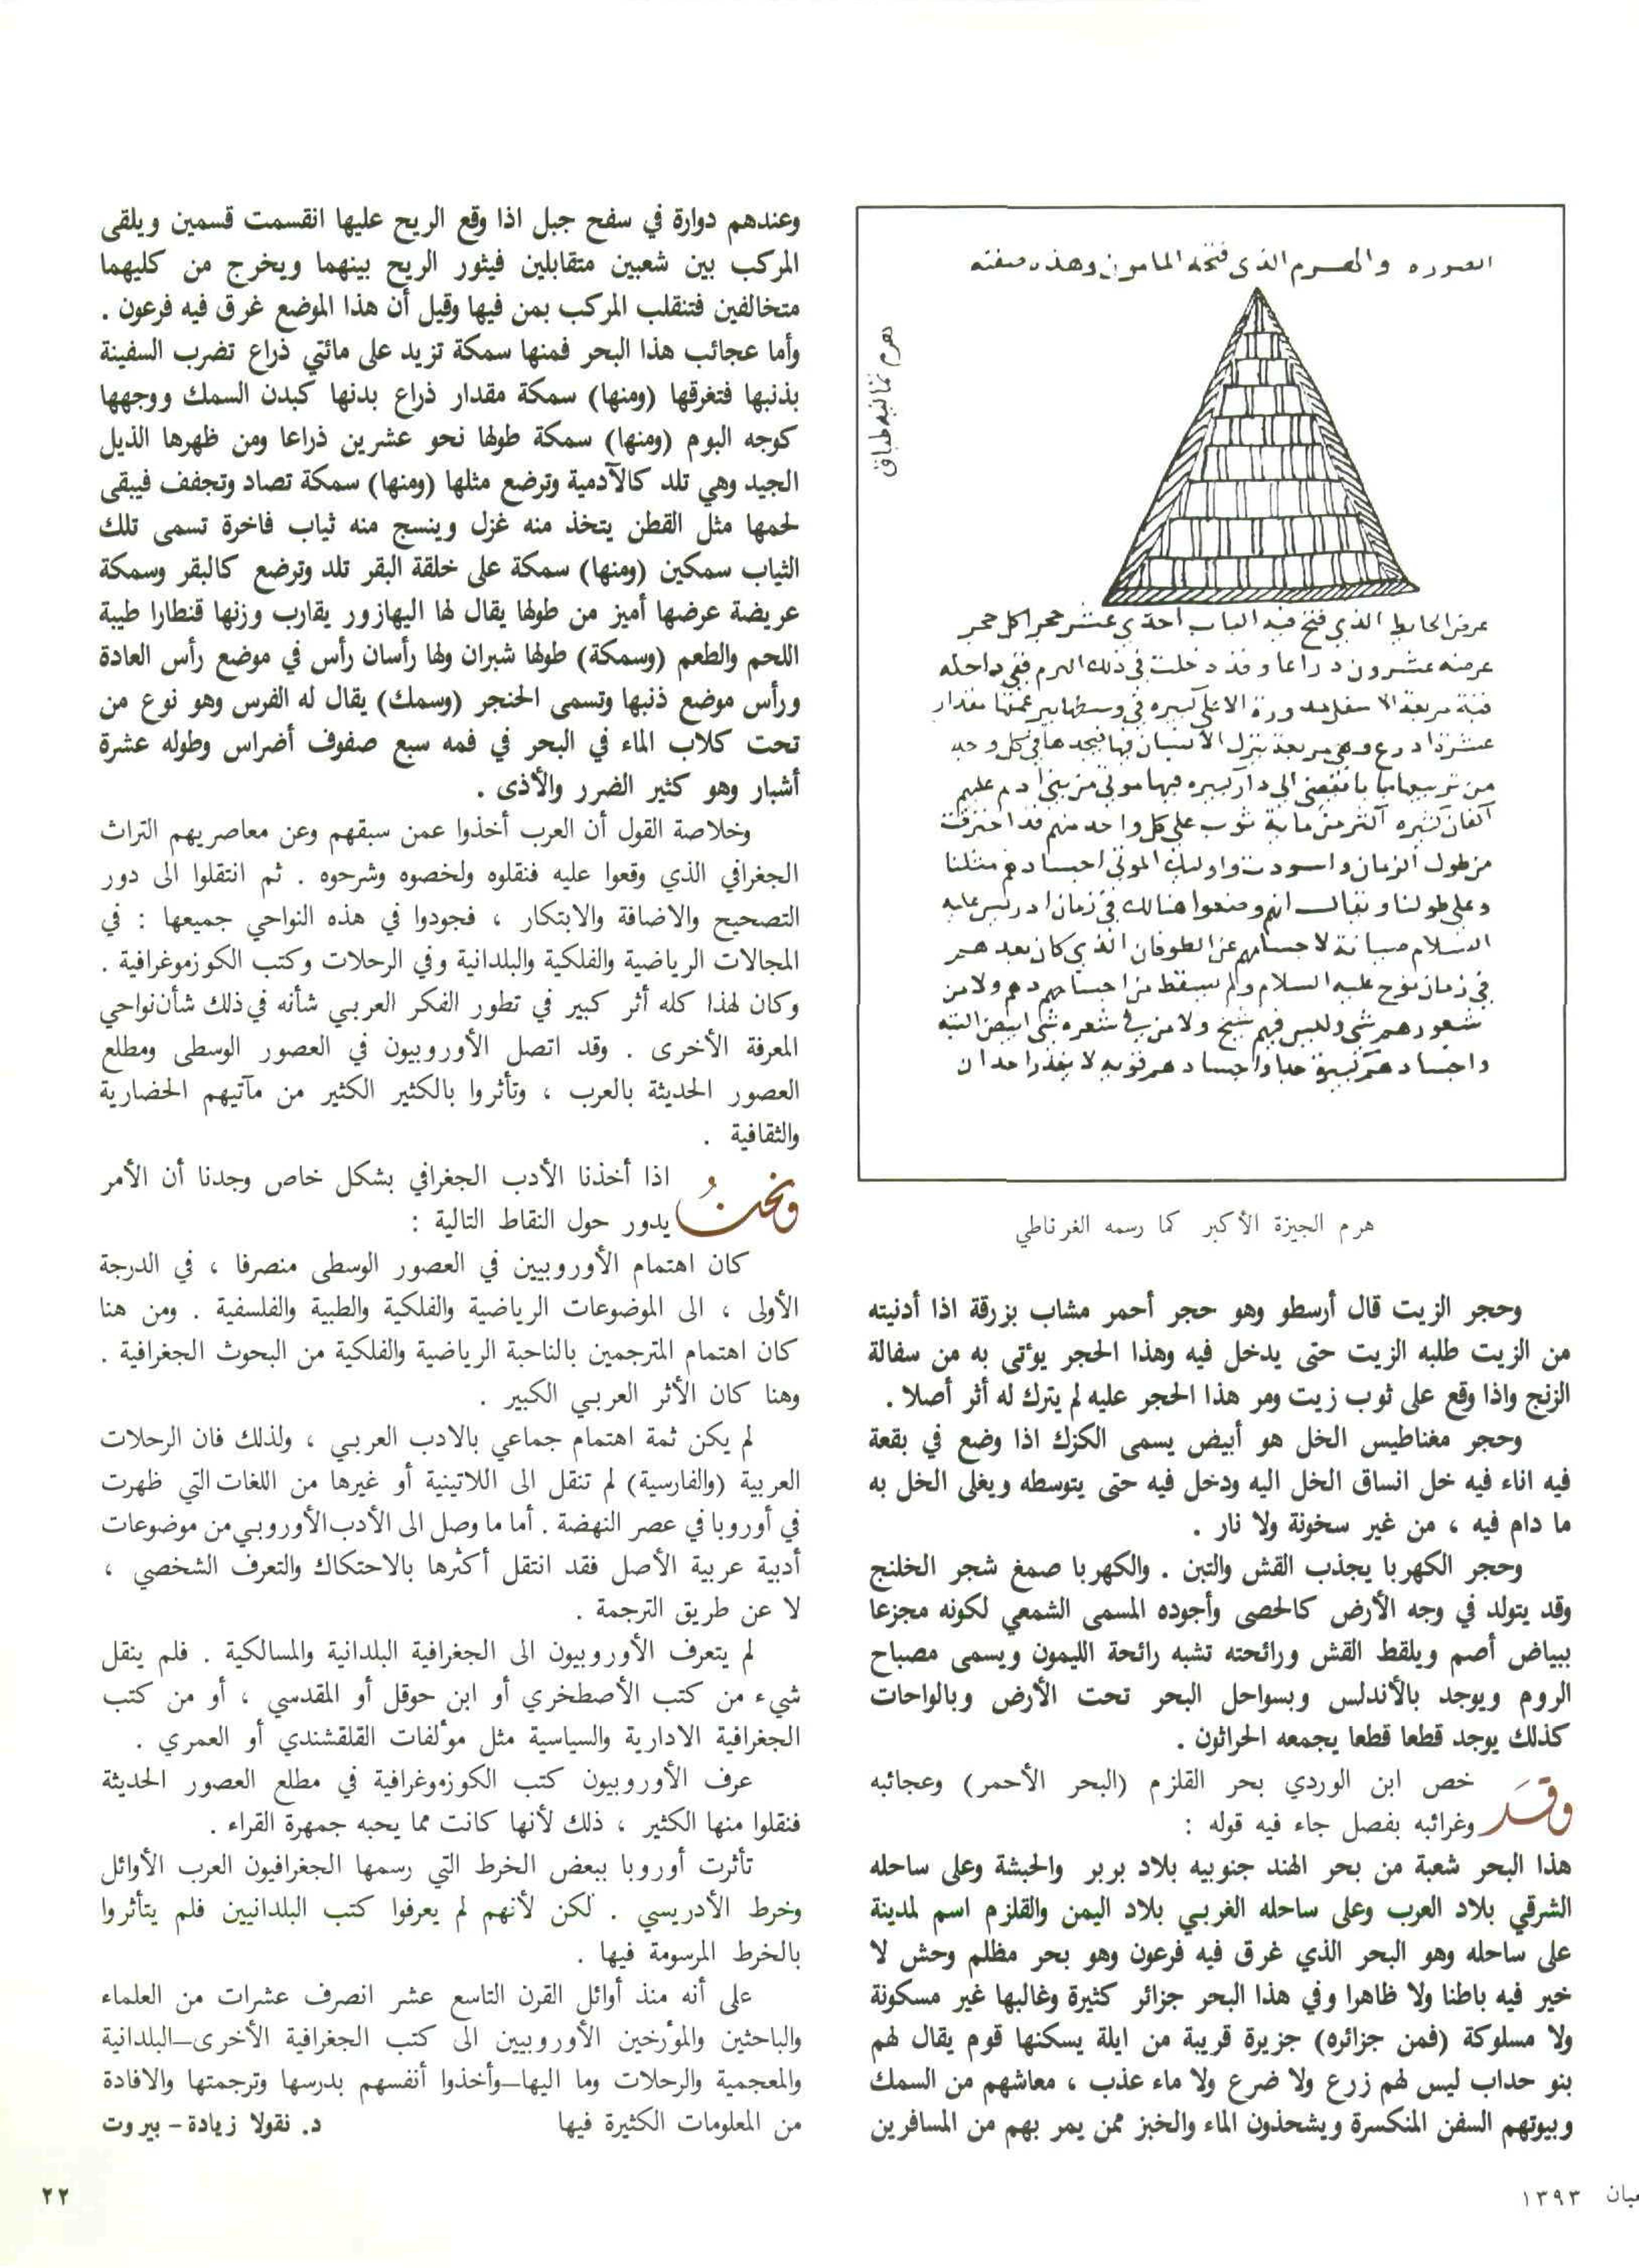 الصوره والهرم الذى فتحه المامون وهذه صفته
هرم ثمانيه طباق
عرض الحايط الذي فتح فيه الباب احدي عشر حجرا كل حجر
عرضه عشرون دراعا وقد دخلت في ذلك الهرم ففي داخله
قبة مربعة الاسفل مدورة الاعلى كبيره في وسطها بير عمقها مقدار
عشرة ادرع وهي مربعة ينزل الانسان فيها فيجد في كل وجه
من تربيعها بابا يفضي الي دار كبيره فيها موتي من بني ادم عليهم
اكفان كثيره اكثر من ماية ثوب على كل واحد منهم قد اخترقت
من طول الزمان واسودت واوليك الموتى اجسادهم مثلنا
وعلى طولنا ويقال انهم وضعوا هنالك في زمان ادريس عليه
السلام صيانة لاجسامهم عن الطوفان الذي كان بعدهم
في زمان نوح عليه السلام ولم يسقط من اجسامهم ولا من
شعورهم شي وليس فيهم شيخ ولا من في شعره شي ابيض البته
واجسادهم قويه لا يقدر احد ان
هرم الجيزة الأكبر كما رسمه الغرناطي
وحجر الزيت قال أرسطو وهو حجر أحمر مشاب بزرقة اذا أدنيته
من الزيت طلبه الزيت حتى يدخل فيه وهذا الحجر يؤتى به من سفالة
الزنج واذا وقع على ثوب زيت ومر هذا الحجر عليه لم يترك له أثر أصلا .
وحجر مغناطيس الخل هو أبيض يسمى الكزك اذا وضع في بقعة
فيه اناء فيه خل انساق الخل اليه ودخل فيه حتى يتوسطه ويغلى الخل به
ما دام فيه ، من غير سخونة ولا نار .
وحجر الكهربا يجذب القش والتبن . والكهربا صمغ شجر الخلنج
وقد يتولد في وجه الأرض كالحصى وأجوده المسمى الشمعي لكونه مجزعا
ببياض أصم ويلقط القش ورائحته تشبه رائحة الليمون ويسمى مصباح
الروم ويوجد بالأندلس وبسواحل البحر تحت الأرض وبالواحات
كذلك يوجد قطعا قطعا يجمعه الحراثون .
وقد خص ابن الوردي بحر القلزم (البحر الأحمر) وعجائبه
وغرائبه بفصل جاء فيه قوله :
هذا البحر شعبة من بحر الهند جنوبيه بلاد بربر والحبشة وعلى ساحله
الشرقي بلاد العرب وعلى ساحله الغربي بلاد اليمن والقلزم اسم لمدينة
على ساحله وهو البحر الذي غرق فيه فرعون وهو بحر مظلم وحش لا
خير فيه باطنا ولا ظاهرا وفي هذا البحر جزائر كثيرة وغالبها غير مسكونة
ولا مسلوكة (فمن جزائره) جزيرة قريبة من ايلة يسكنها قوم يقال لهم
بنو حداب ليس لهم زرع ولا ضرع ولا ماء عذب ، معاشهم من السمك
وبيوتهم السفن المنكسرة ويشحذون الماء والخبز ممن يمر بهم من المسافرين
وعندهم دوارة في سفح جبل اذا وقع الريح عليها انقسمت قسمين ويلقى
المركب بين شعبين متقابلين فيثور الريح بينهما ويخرج من كليهما
متخالفين فتنقلب المركب بمن فيها وقيل أن هذا الموضع غرق فيه فرعون .
وأما عجائب هذا البحر فمنها سمكة تزيد على مائتي ذراع تضرب السفينة
بذنبها فتغرقها (ومنها) سمكة مقدار ذراع بدنها كبدن السمك ووجهها
كوجه البوم (ومنها) سمكة طولها نحو عشرين ذراعا ومن ظهرها الذيل
الجيد وهي تلد كالآدمية وترضع مثلها (ومنها) سمكة تصاد وتجفف فيبقى
لحمها مثل القطن يتخذ منه غزل وينسج منه ثياب فاخرة تسمى تلك
الثياب سمكين (ومنها) سمكة على خلقة البقر تلد وترضع كالبقر وسمكة
عريضة عرضها أميز من طولها يقال لها اليهازور يقارب وزنها قنطارا طيبة
اللحم والطعم (وسمكة) طولها شبران ولها رأسان رأس في موضع رأس العادة
ورأس موضع ذنبها وتسمى الخنجر (وسمك) يقال له الفرس وهو نوع من
تحت كلاب الماء في البحر في فمه سبع صفوف أضراس وطوله عشرة
أشبار وهو كثير الضرر والأذى .
وخلاصة القول أن العرب أخذوا عمن سبقهم وعن معاصريهم التراث
الجغرافي الذي وقعوا عليه فنقلوه ولخصوه وشرحوه . ثم انتقلوا الى دور
التصحيح والاضافة والابتكار ، فجودوا في هذه النواحي جميعها : في
المجالات الرياضية والفلكية والبلدانية وفي الرحلات وكتب الكوزموغرافية .
وكان لهذا كله أثر كبير في تطور الفكر العربي شأنه في ذلك شأن نواحي
المعرفة الأخرى . وقد اتصل الأوروبيون في العصور الوسطى ومطلع
العصور الحديثة بالعرب ، وتأثروا بالكثير الكثير من مآتيهم الحضارية
والثقافية .
ونحنُ اذا أخذنا الأدب الجغرافي بشكل خاص وجدنا أن الأمر
يدور حول النقاط التالية :
كان اهتمام الأوروبيين في العصور الوسطى منصرفا ، في الدرجة
الأولى ، الى الموضوعات الرياضية والفلكية والطبية والفلسفية . ومن هنا
كان اهتمام المترجمين بالناحية الرياضية والفلكية من البحوث الجغرافية .
وهنا كان الأثر العربي الكبير .
لم يكن ثمة اهتمام جماعي بالادب العربي ، ولذلك فان الرحلات
العربية (والفارسية) لم تنقل الى اللاتينية أو غيرها من اللغات التي ظهرت
في أوروبا في عصر النهضة . أما ما وصل الى الأدب الأوروبي من موضوعات
أدبية عربية الأصل فقد انتقل أكثرها بالاحتكاك والتعرف الشخصي ،
لا عن طريق الترجمة .
لم يتعرف الأوروبيون الى الجغرافية البلدانية والمسالكية . فلم ينقل
شيء من كتب الأصطخري أو ابن حوقل أو المقدسي ، أو من كتب
الجغرافية الادارية والسياسية مثل مؤلفات القلقشندي أو العمري .
عرف الأوروبيون كتب الكوزموغرافية في مطلع العصور الحديثة
فنقلوا منها الكثير ، ذلك لأنها كانت مما يحبه جمهرة القراء .
تأثرت أوروبا ببعض الخرط التي رسمها الجغرافيون العرب الأوائل
وخرط الأدريسي . لكن لأنهم لم يعرفوا كتب البلدانيين فلم يتأثروا
بالخرط المرسومة فيها .
على أنه منذ أوائل القرن التاسع عشر انصرف عشرات من العلماء
والباحثين والمؤرخين الأوروبيين الى كتب الجغرافية الأخرى—البلدانية
والمعجمية والرحلات وما اليها—وأخذوا أنفسهم بدرسها وترجمتها والافادة
من المعلومات الكثيرة فيها د. نقولا زيادة - بيروت
عبان ١٣٩٣
٢٢